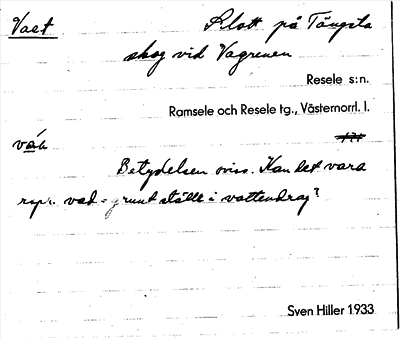 Vaet Slott på Tängsta
skog vid Vagrenen
Resele s:n.
Ramsele och Resele tg., Västernorrl. l.
Betydelsen oviss. Kan det vara
rspr. vad = grunt ställe i vattendrag?
Sven Hiller 1933